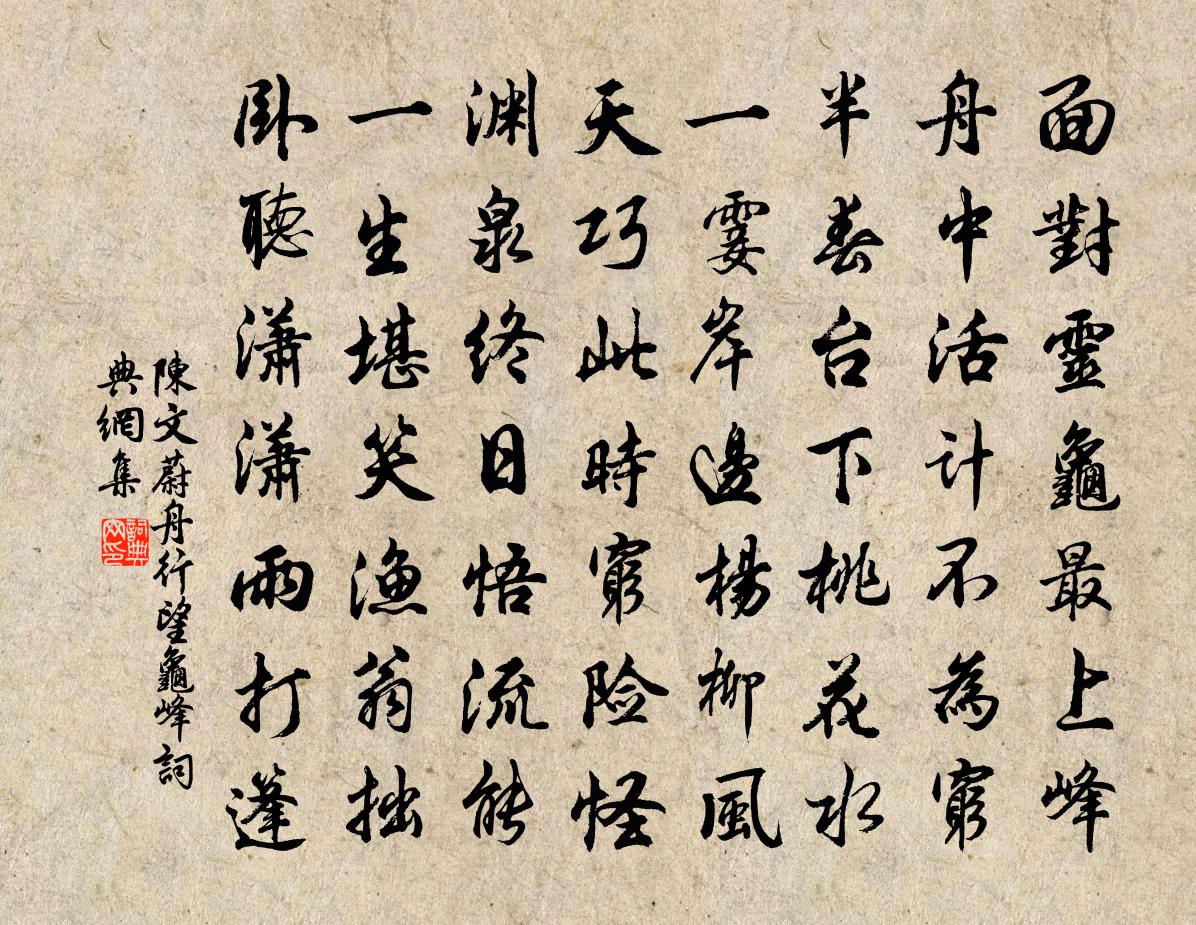 面對靈龜最上峰
舟中活計不為窮
半春台下桃花水
一霎岸邊楊柳風
天巧此時窮险怪
渊泉終日悟流能
一生堪笑漁翁拙
卧聽瀟瀟雨打蓬
陳文蔚舟行望龜峰詞
典網集
詞典
网印